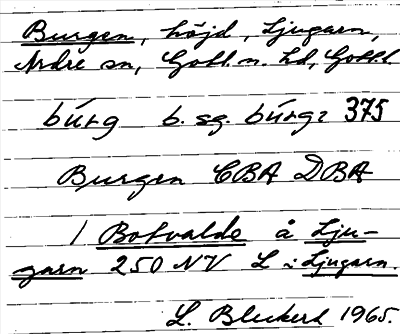 Burgen, höjd, Ljugarn,
Ardre sn, Gotl. n. hd, Gotl. l
búrg b. sg. búrgɛ 375
Burgen CBA DBA
/ Botvalde å Lju-
garn 250 NV L i Ljugarn.
L. Bleckert 1965.